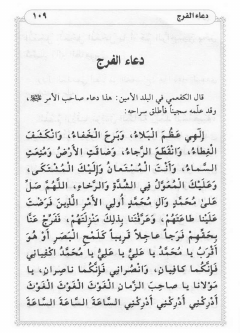 دعاء الفرج ١٠٩
دعاء الفرج
قال الكفعمي في البلد الأمين: هذا دعاء صاحب الأمر ﷺ،
وقد علّمه سجيناً فأطلق سراحه:
إِلٰهِي عَظُمَ الْبَلاَءُ، وَبَرِحَ الْخَفاءُ، وَانْكَشَفَ
الْغِطاءُ، وَانْقَطَعَ الرَّجاءُ، وَضاقَتِ الأَرْضُ وَمُنِعَتِ
السَّماءُ، وَأَنْتَ الْمُسْتَعانُ وَإِلَيْكَ الْمُشْتَكى،
وَعَلَيْكَ الْمُعَوَّلُ فِي الشِّدَّةِ وَالرَّخاءِ، اللّهُمَّ صَلِّ
عَلىٰ مُحَمَّدٍ وَآلِ مُحَمَّدٍ أُولِي الأَمْرِ الَّذِينَ فَرَضْتَ
عَلَيْنا طاعَتَهُمْ، وَعَرَّفْتَنا بِذلِكَ مَنْزِلَتَهُمْ، فَفَرِّجْ عَنَّا
بِحَقِّهِمْ فَرَجاً عاجِلاً قَرِيباً كَلَمْحِ الْبَصَرِ أَوْ هُوَ
أَقْرَبُ يا مُحَمَّدُ يا عَلِيُّ يا عَلِيُّ يا مُحَمَّدُ اكْفِيانِي
فَإِنَّكُما كافِيانِ، وَانْصُرانِي فَإِنَّكُما ناصِرانِ، يا
مَوْلانا يا صاحِبَ الزَّمانِ الْغَوْثَ الْغَوْثَ الْغَوْثَ
أَدْرِكْنِي أَدْرِكْنِي أَدْرِكْنِي السَّاعَةَ السَّاعَةَ السَّاعَةَ